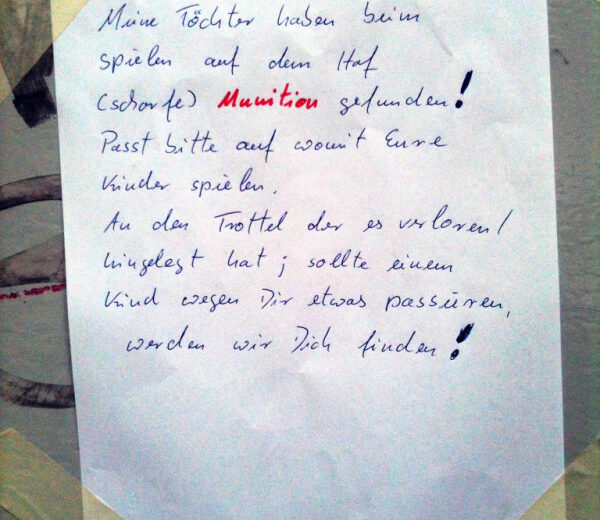 Meine Töchter haben beim
spielen auf dem Hof
(scharfe) Munition gefunden!
Passt bitte auf womit Eure
Kinder spielen.
An den Trottel der es verloren/
hingelegt hat; sollte einem
Kind wegen Dir etwas passieren,
werden wir Dich finden!